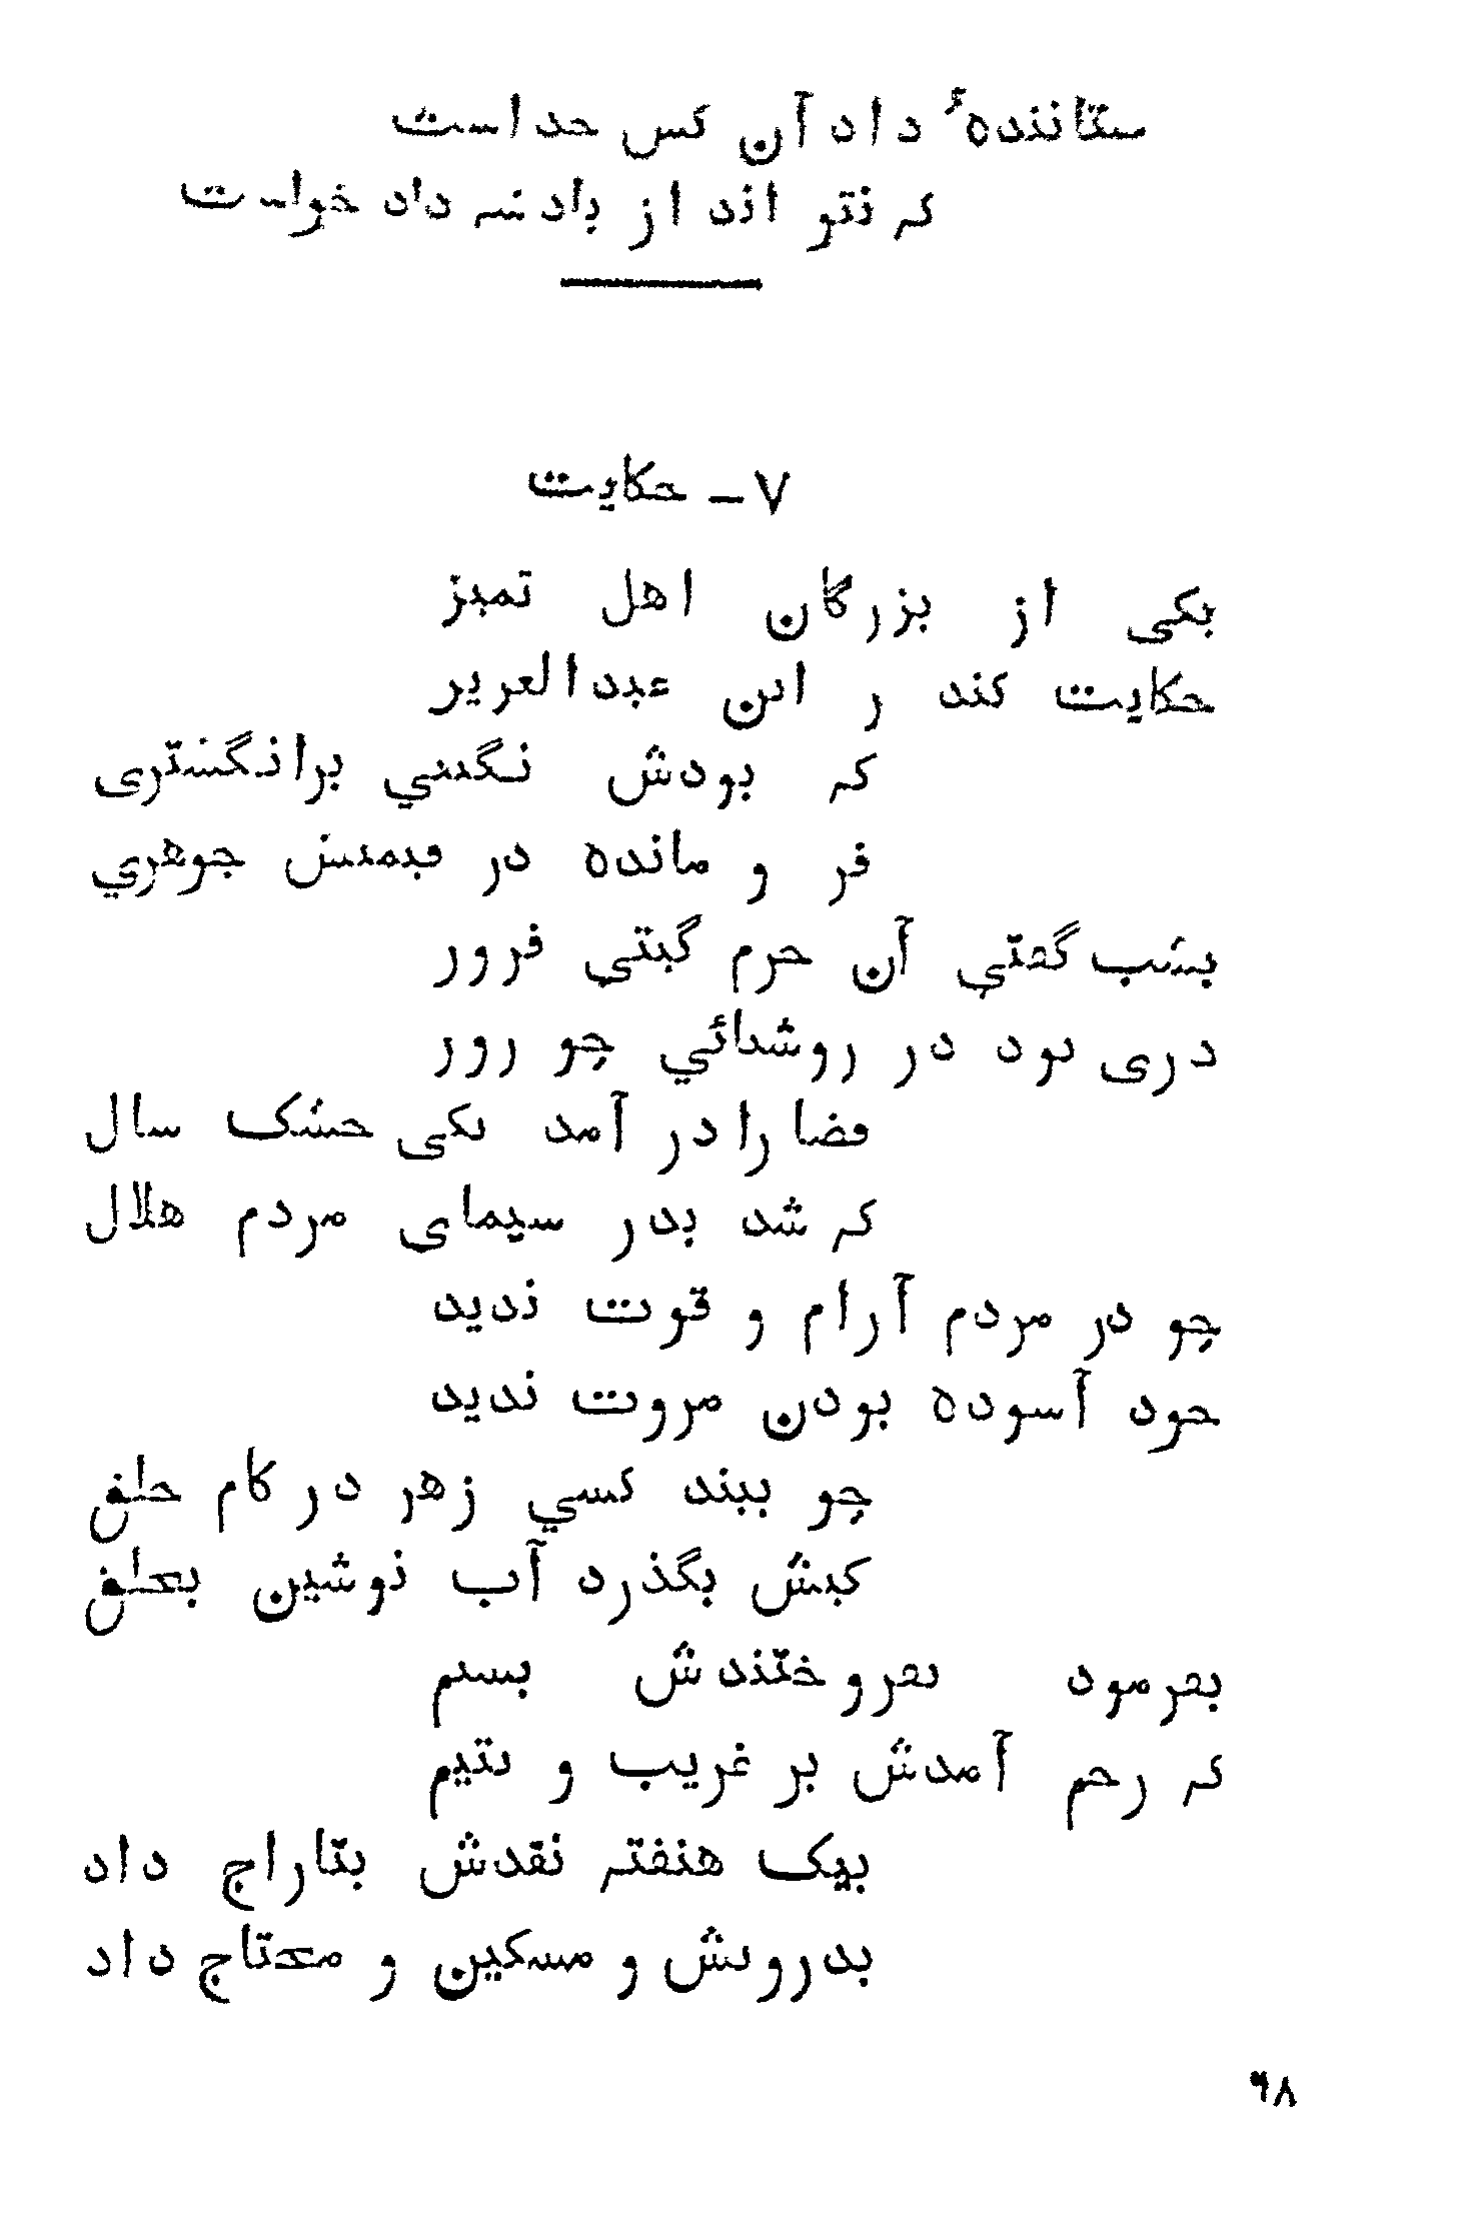 ستانندهٔ داد آن کس خداست
که نتواند از پادشه داد خواست
۷ - حکایت
یکی از بزرگان اهل تمیز
حکایت کند ز ابن عبدالعزیز
که بودش نگینی بر انگشتری
فرو مانده در قیمتش جوهری
بشب گفتی آن جرم گیتی فروز
دری بود در روشنائی چو روز
قضا را در آمد یکی خشک سال
که شد بدر سیمای مردم هلال
چو در مردم آرام و قوت ندید
خود آسوده بودن مروت ندید
چو بیند کسی زهر در کام خلق
کیش بگذرد آب نوشین بحلق
بفرمود بفروختندش بسیم
که رحم آمدش بر غریب و یتیم
بیک هفته نقدش بتاراج داد
بدرویش و مسکین و محتاج داد
۶۸